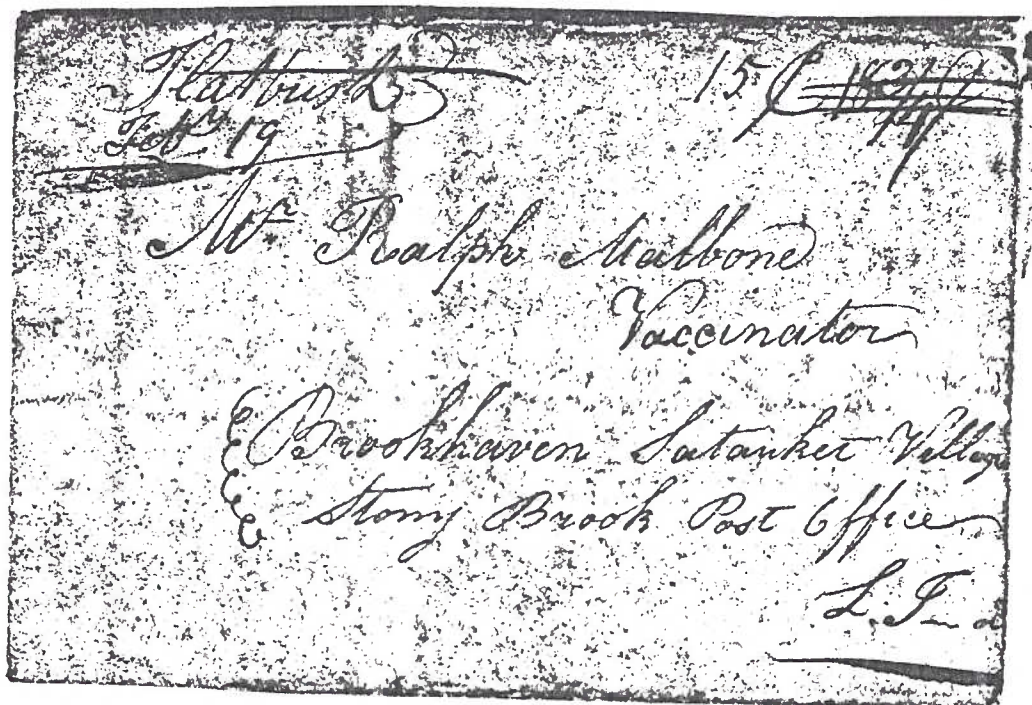 Flatbush
Feby 19
15
Mr Ralph Malbone
Vaccinator
Brookhaven Satauket Village
Stony Brook Post Office
L. I